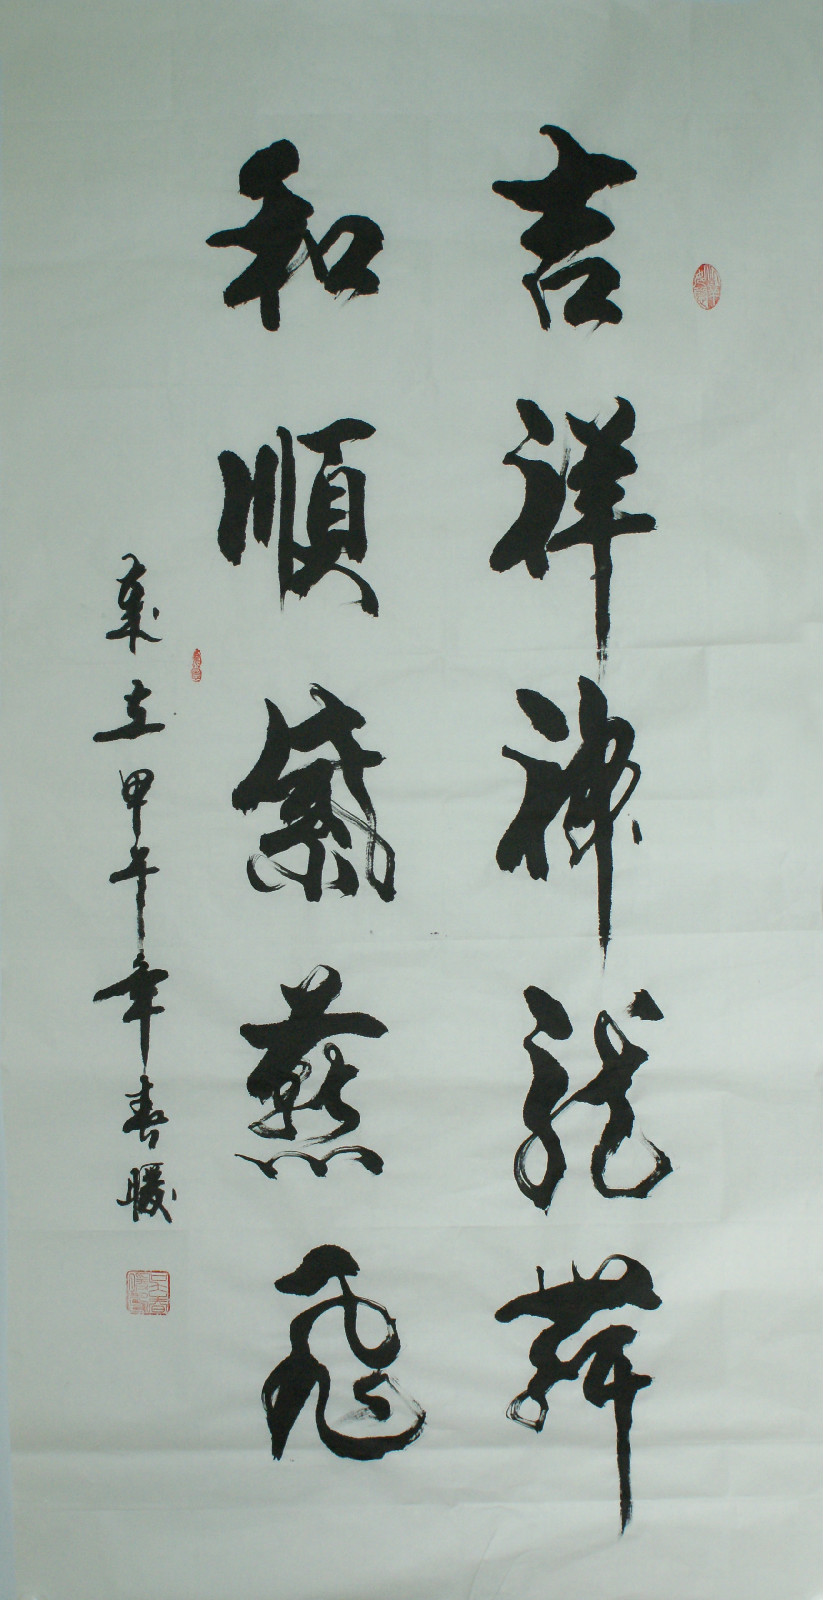 吉祥神龍舞
和順紫燕飛
歲在甲午年春暖